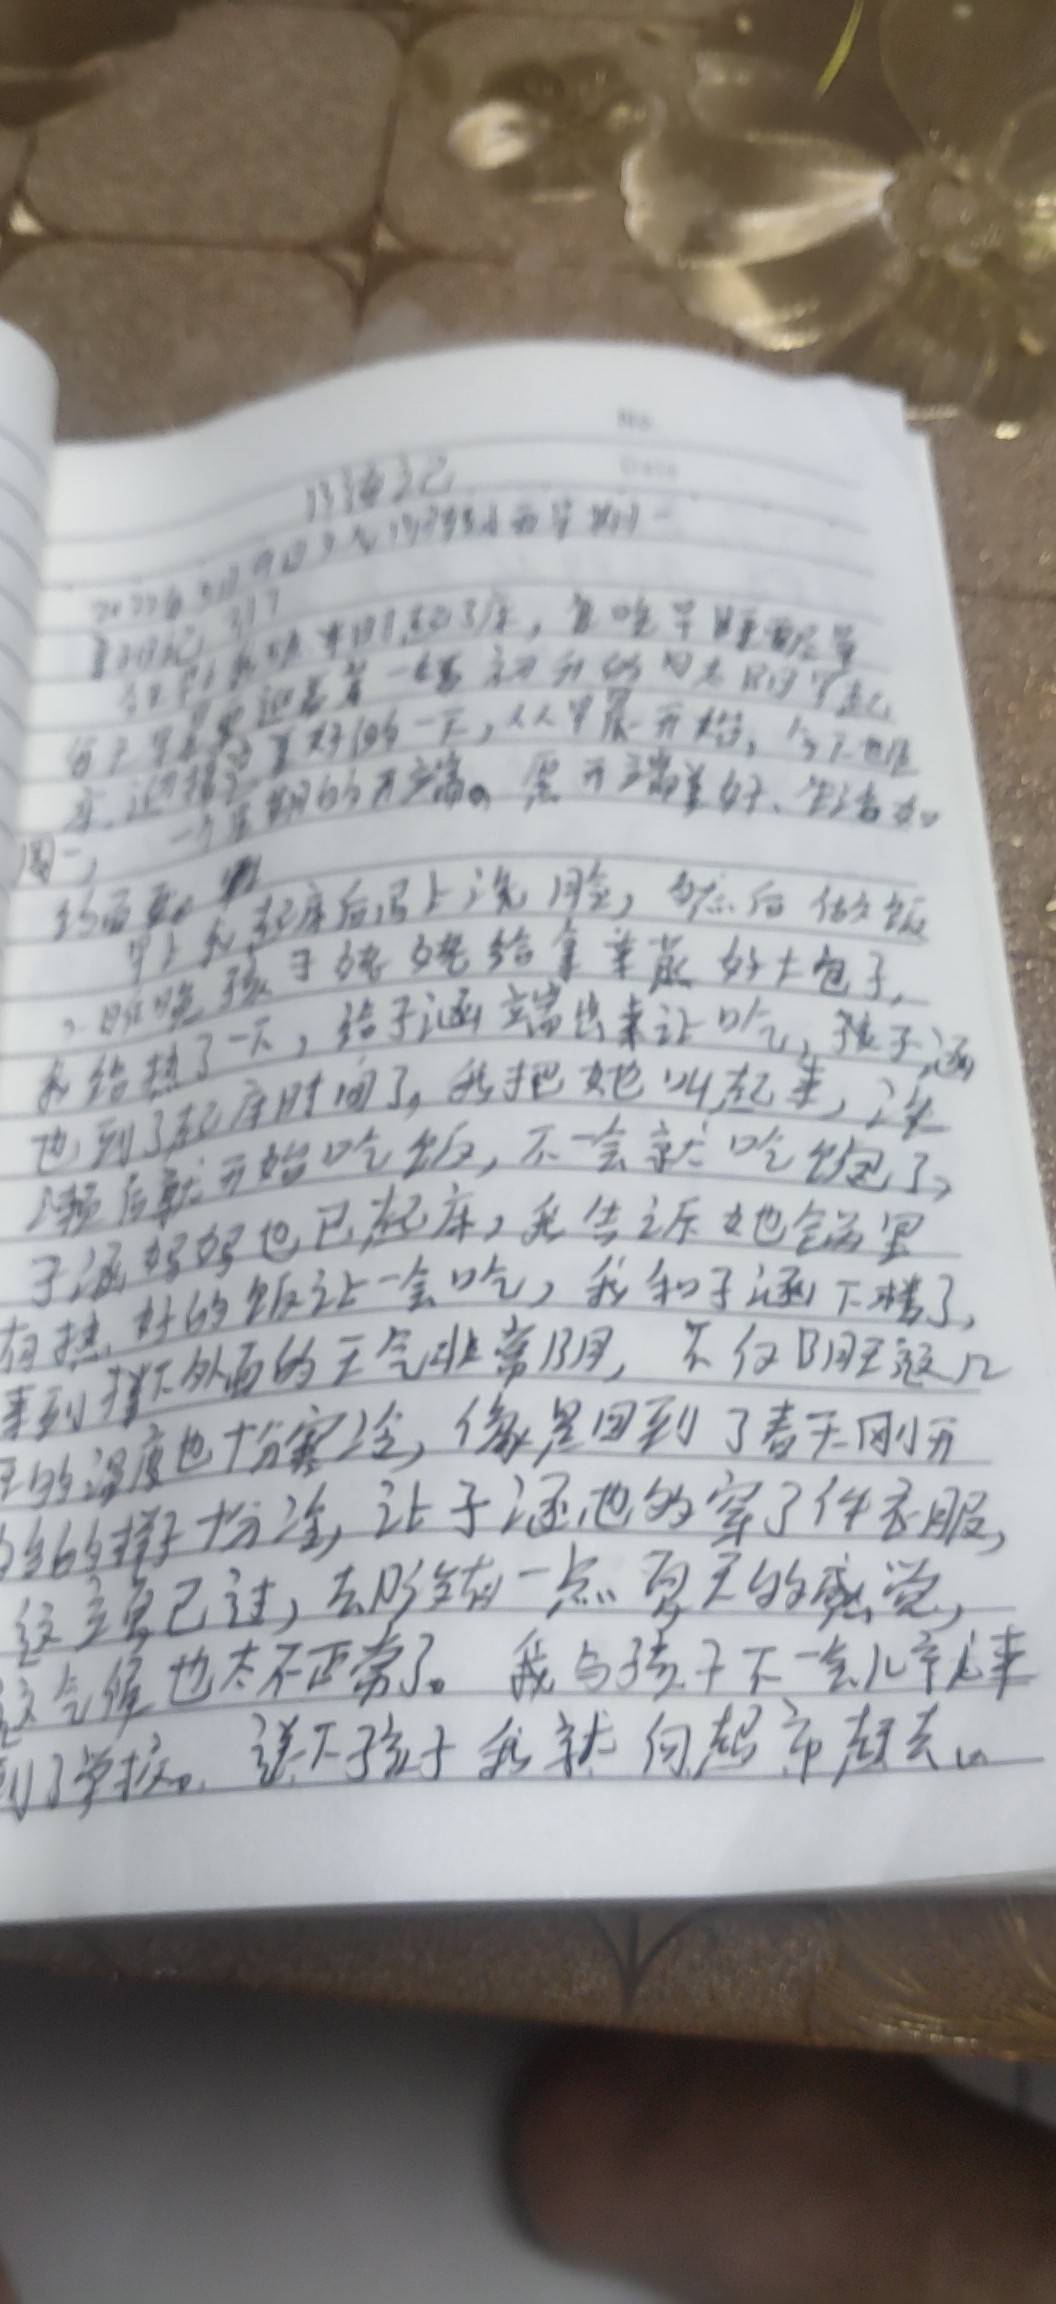 No.
Date
2022年5月9日 星期一
复日记 317
起了床,
每天早晨 迎着着一缕初升的 起
美好的一天,从早晨开始,今天也是
周一, 一个星期的开端。愿开端美好、生活如
约而至。
早上我起床后马上洗脸, 然后做饭
昨晚孩子姥姥给拿来蒸好大包子,
我给热了一下,给子涵端出来让吃,孩子涵
也到了起床时间了。我把她叫起来,洗
漱后就开始吃饭,不一会就吃饱了,
子涵妈妈也已起床,我告诉她锅里
有热好的饭让一会吃,我和子涵下楼了,
来到楼下外面的天气非常阴,不仅阴天这几
天的温度也十分寒冷,像是回到了春天刚开
始的样子十分冷,让子涵也多穿了件衣服,
这立夏已过,去 一点夏天的感觉,
这气候也太不正常了。我与孩子不一会儿就来
到了学校。送下孩子我就向超市赶去。